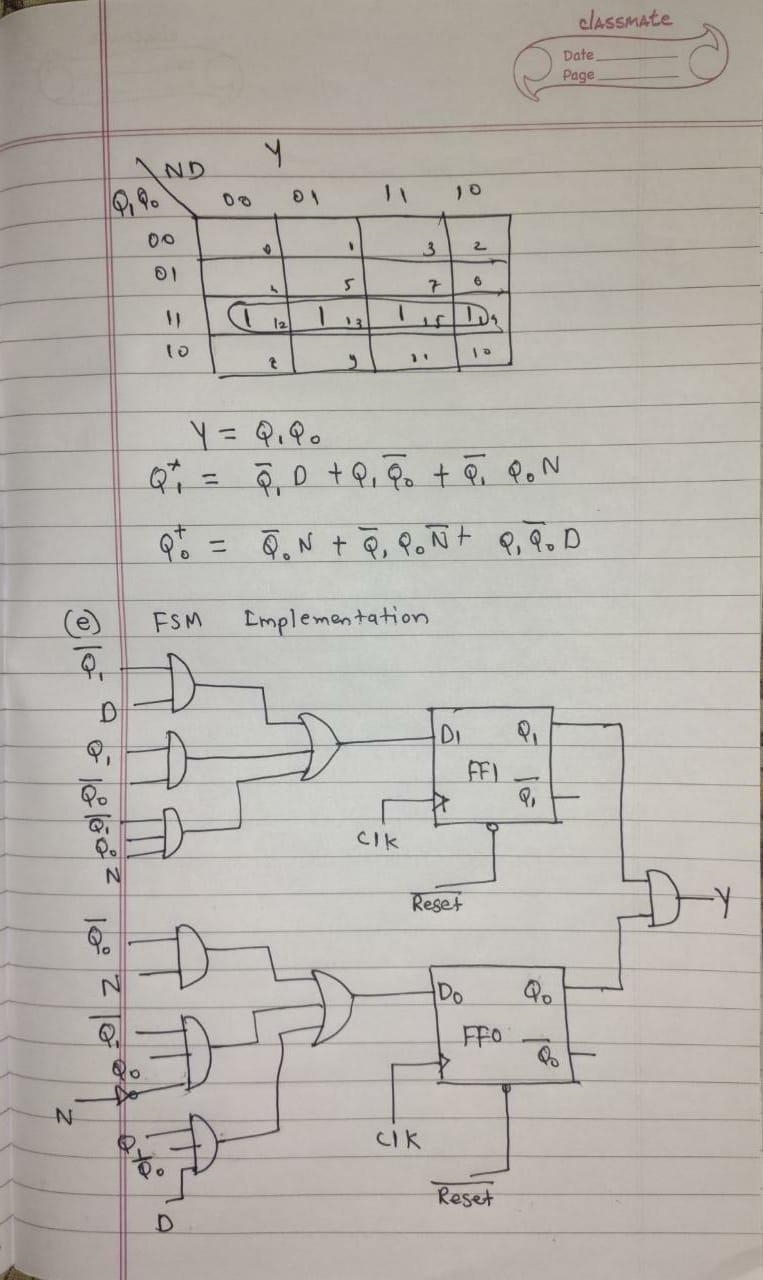 classmate
Date
Page
Y
ND
Q₁Q₀ 00 01 11 10
00 0 1 3 2
01 4 5 7 6
11 1 12 1 13 1 15 1 14
10 8 9 11 10
Y = Q₁Q₀
Q₁⁺ = Q̅₁ D + Q₁ Q̅₀ + Q̅₁ Q₀ N
Q₀⁺ = Q̅₀ N + Q̅₁ Q₀ N̅ + Q₁ Q̅₀ D
(e) FSM Implementation
Q̅₁
D
Q₁
Q̅₀
Q̅₁
Q₀
N
D₁ Q₁
FF1
Q̅₁
Clk
R̅e̅s̅e̅t̅
Y
Q̅₀
N
Q̅₁
Q₀
N
Q₁
Q̅₀
D
D₀ Q₀
FF0
Q̅₀
Clk
R̅e̅s̅e̅t̅